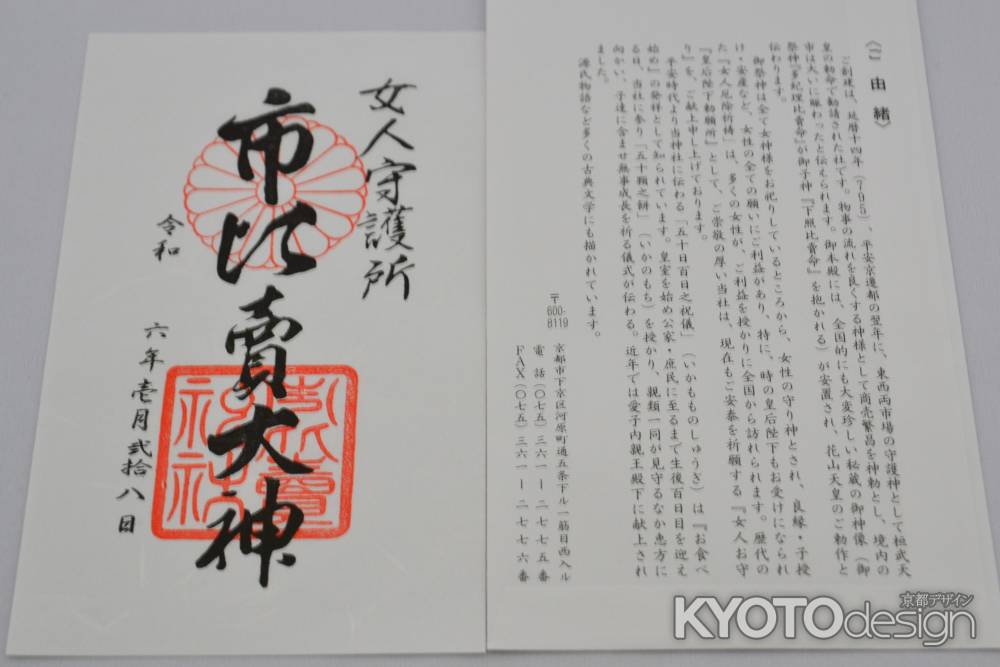 女人守護所
市比賣大神
令和
六年壱月弐拾八日
《ご由緒》
ご創建は、延暦十四年(795)、平安京遷都の翌年に、東西両市場の守護神として桓武天
皇の勅命で勧請された社です。物事の流れを良くする神様として商売繁昌を神勅とし、境内の
市は大いに賑わったと伝えられます。御本殿には、全国的にも大変珍しい秘蔵の御神像(御
祭神『多紀理比賣命』が御子神『下照比賣命』を抱かれる)が安置され、花山天皇のご勅作と
伝わります。
御祭神は全て女神様をお祀りしているところから、女性の守り神とされ、良縁・子授
け・安産など、女性の全ての願いにご利益があり、特に、時の皇后陛下もお受けになられ
た『女人厄除祈祷』は、多くの女性が、ご利益を授かりに全国から訪れられます。歴代の
『皇后陛下勅願所』として、ご崇敬の厚い当社は、現在もご安泰を祈願する『女人お守
り』を、ご献上申し上げております。
平安時代より当神社に伝わる「五十日百日之祝儀」(いかももものしゅうぎ)は『お食べ
始め』の発祥として知られています。皇室を始め公家・庶民に至るまで生後百日目を迎え
る日、当社に参り「五十顆之餅」(いかのもち)を授かり、親類一同が見守るなか恵方に
向かい、子達に含ませ無事成長を祈る儀式が伝わる。近年では愛子内親王殿下に献上され
ました。
源氏物語など多くの古典文学にも描かれています。
〒600-8119
京都市下京区河原町通五条下ル一筋目西入ル
電話(〇七五)三六一ー二七七五番
FAX(〇七五)三六一ー二七七六番
京都デザイン
KYOTOdesign